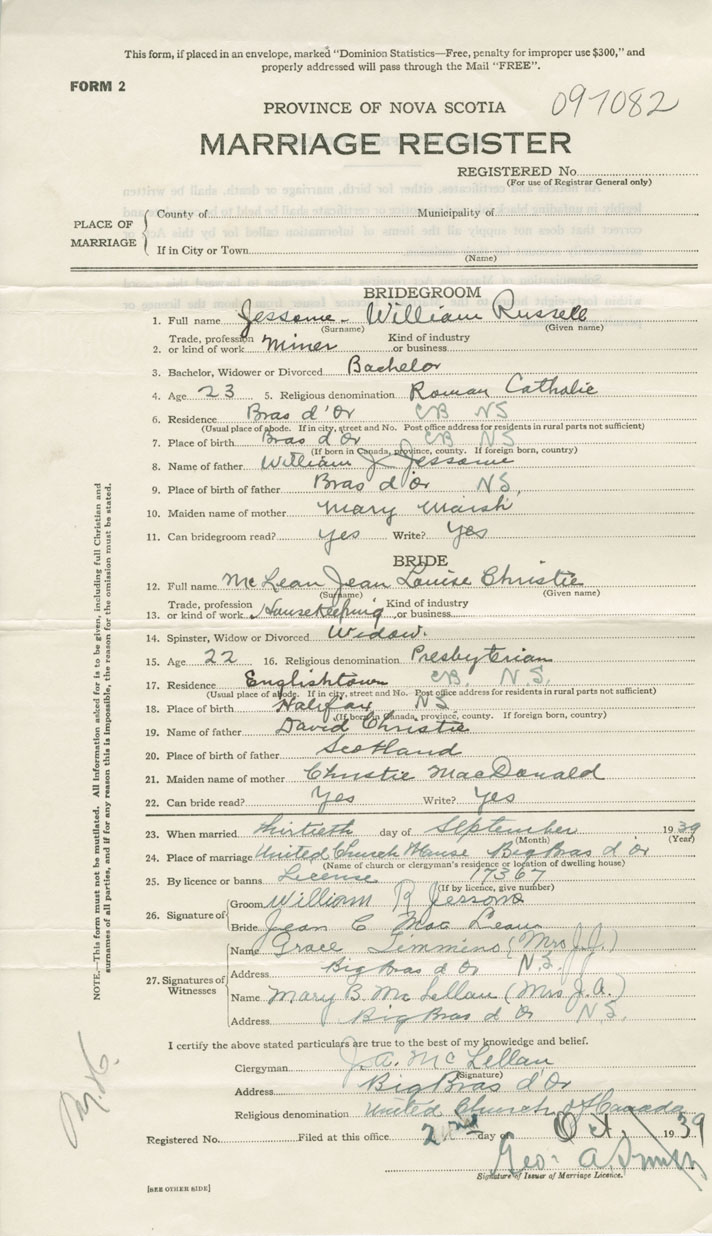 This form, if placed in an envelope, marked "Dominion Statistics—Free, penalty for improper use $300," and
properly addressed will pass through the Mail "FREE".
FORM 2
097082
PROVINCE OF NOVA SCOTIA
MARRIAGE REGISTER
REGISTERED No.
(For use of Registrar General only)
PLACE OF MARRIAGE
County of Municipality of
If in City or Town
(Name)
BRIDEGROOM
1. Full name Jessome - William Russell
(Surname) (Given name)
2. Trade, profession or kind of work Miner Kind of industry or business
3. Bachelor, Widower or Divorced Bachelor
4. Age 23 5. Religious denomination Roman Catholic
6. Residence Bras d'Or CB NS
(Usual place of abode. If in city, street and No. Post office address for residents in rural parts not sufficient)
7. Place of birth Bras d'Or CB NS
(If born in Canada, province, county. If foreign born, country)
8. Name of father William J Jessome
9. Place of birth of father Bras d'or N.S.
10. Maiden name of mother Mary Marsh
11. Can bridegroom read? yes Write? yes
BRIDE
12. Full name McLean Jean Louise Christie
(Surname) (Given name)
13. Trade, profession or kind of work Housekeeping Kind of industry or business
14. Spinster, Widow or Divorced Widow.
15. Age 22 16. Religious denomination Presbyterian
17. Residence Englishtown CB. N.S.
(Usual place of abode. If in city, street and No. Post office address for residents in rural parts not sufficient)
18. Place of birth Halifax NS
(If born in Canada, province, county. If foreign born, country)
19. Name of father David Christie
20. Place of birth of father Scotland
21. Maiden name of mother Christie MacDonald
22. Can bride read? Yes Write? Yes
23. When married thirtieth day of September 1939
(Month) (Year)
24. Place of marriage United Church Manse Big Bras d'or
(Name of church or clergyman's residence or location of dwelling house)
25. By licence or banns License 17367
(If by licence, give number)
26. Signature of
Groom William R Jessome
Bride Jean C Mac Lean
27. Signatures of Witnesses
Name Grace Timmins (Mrs J.J.)
Address Big Bras d Or N.S.
Name Mary B. McLellan (Mrs J.A.)
Address Big Bras d Or N.S.
I certify the above stated particulars are true to the best of my knowledge and belief.
Clergyman J.A. McLellan
(Signature)
Address Big Bras d'Or
Religious denomination United Church of Canada
Registered No. Filed at this office 2nd day of Oct. 1939
Geo. A Smith
Signature of Issuer of Marriage Licence.
[SEE OTHER SIDE]
NOTE.—This form must not be mutilated. All information asked for is to be given, including full Christian and
surnames of all parties, and if for any reason this is impossible, the reason for the omission must be stated.